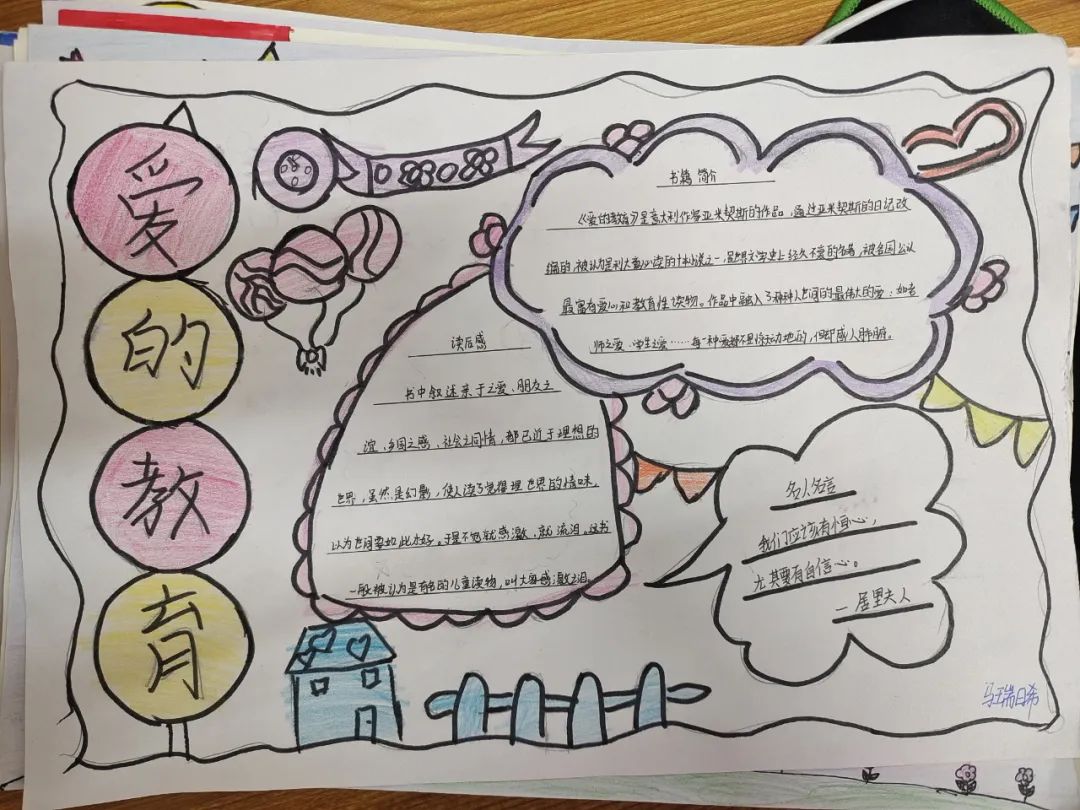 爱
的
教
育
书籍 简介
《爱的教育》是意大利作家亚米契斯的作品。通过亚米契斯的日记改
编的,被认为是意大利人必读的小说之一,是世界文学史上经久不衰的名著,被各国公认
最富有爱心和教育性读物。作品中融入了种种人世间的最伟大的爱:如老
师之爱、学生之爱……每一种爱都不是惊天动地的,但却感人肺腑。
读后感
书中叙述亲子之爱、朋友之
谊、乡国之感、社会之同情,都已近于理想的
世界,虽然是幻影,使人读了觉得理世界的情味,
以为世间要如此才好。于是不觉就感激、就流泪。这书
一般被认为是有名的儿童读物,叫大家感激之泪。
名人名言
我们应该有恒心,
尤其要有自信心。
—居里夫人
马瑞希